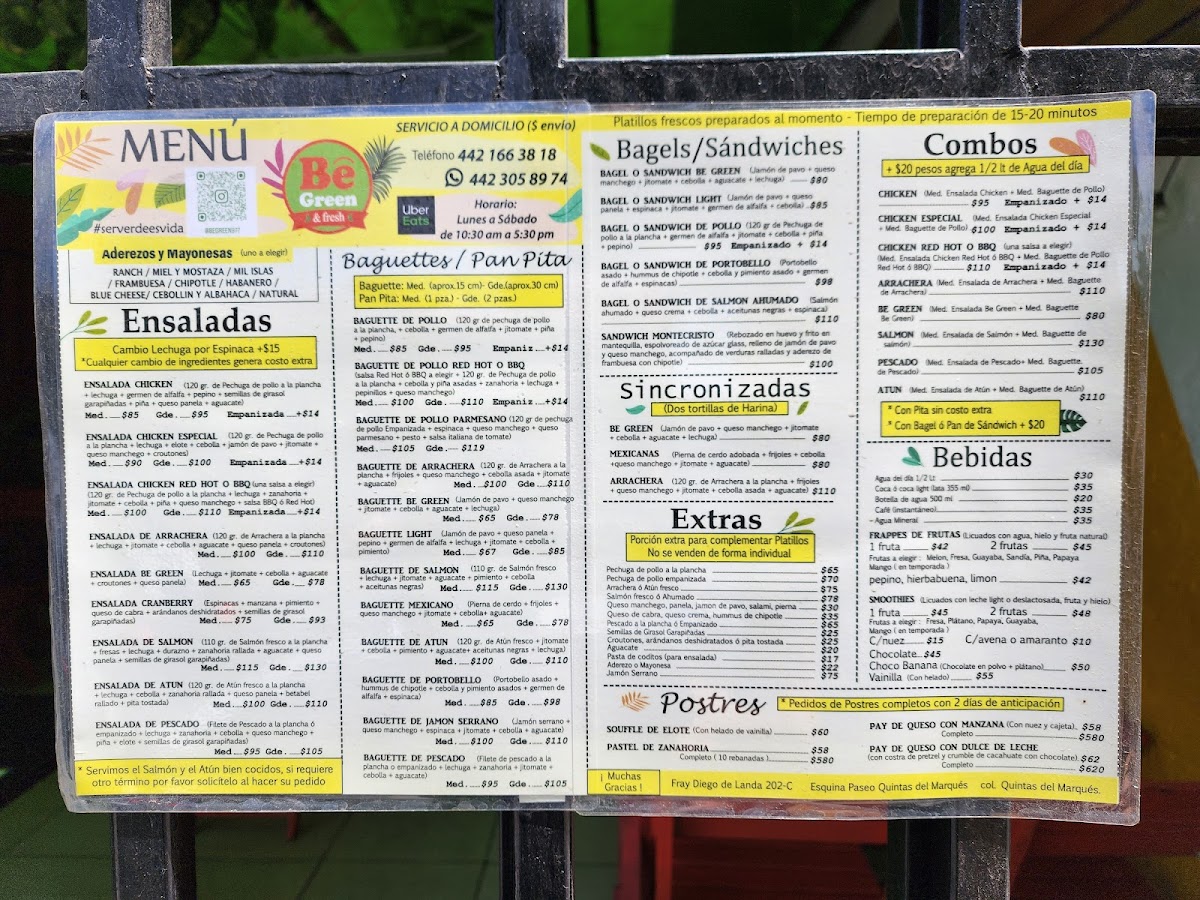 MENÚ
#serverdeesvida
#BEGREENST7
Bē
Green
& fresh
SERVICIO A DOMICILIO ($ envío)
Teléfono 442 166 38 18
442 305 89 74
Uber
Eats
Horario:
Lunes a Sábado
de 10:30 am a 5:30 pm
Aderezos y Mayonesas (uno a elegir)
RANCH / MIEL Y MOSTAZA / MIL ISLAS
/ FRAMBUESA / CHIPOTLE / HABANERO /
BLUE CHEESE/ CEBOLLIN Y ALBAHACA / NATURAL
Ensaladas
Cambio Lechuga por Espinaca +$15
*Cualquier cambio de ingredientes genera costo extra
ENSALADA CHICKEN (120 gr. de Pechuga de pollo a la plancha
+ lechuga + germen de alfalfa + pepino + semillas de girasol
garapiñadas + piña + queso panela + aguacate)
Med.....$85 Gde.....$95 Empanizada....+$14
ENSALADA CHICKEN ESPECIAL (120 gr. de Pechuga de pollo
a la plancha + lechuga + elote + cebolla + jamón de pavo + jitomate +
queso manchego + croutones)
Med.....$90 Gde.....$100 Empanizada....+$14
ENSALADA CHICKEN RED HOT O BBQ (una salsa a elegir)
(120 gr. de Pechuga de pollo a la plancha + lechuga + zanahoria +
jitomate + cebolla + piña + queso manchego + salsa BBQ ó Red Hot)
Med.....$100 Gde.....$110 Empanizada....+$14
ENSALADA DE ARRACHERA (120 gr. de Arrachera a la plancha
+ lechuga + jitomate + cebolla + aguacate + queso panela + croutones)
Med.....$100 Gde.....$110
ENSALADA BE GREEN (Lechuga + jitomate + cebolla + aguacate
+ croutones + queso panela) Med.....$65 Gde.....$78
ENSALADA CRANBERRY (Espinacas + manzana + pimiento +
queso de cabra + arándanos deshidratados + semillas de girasol
garapiñadas) Med.....$75 Gde.....$93
ENSALADA DE SALMON (110 gr. de Salmón fresco a la plancha
+ fresas + lechuga + durazno + zanahoria rallada + aguacate + queso
panela + semillas de girasol garapiñadas)
Med.....$115 Gde.....$130
ENSALADA DE ATUN (120 gr. de Atún fresco a la plancha
+ lechuga + cebolla + zanahoria rallada + queso panela + betabel
rallado + pita tostada) Med.....$100 Gde.....$110
ENSALADA DE PESCADO (Filete de Pescado a la plancha ó
empanizado + lechuga + zanahoria + cebolla + queso manchego +
piña + elote + semillas de girasol garapiñadas)
Med.....$95 Gde.....$105
* Servimos el Salmón y el Atún bien cocidos, si requiere
otro término por favor solicítelo al hacer su pedido
Baguettes / Pan Pita
Baguette: Med. (aprox.15 cm)- Gde.(aprox.30 cm)
Pan Pita: Med. (1 pza.) - Gde. (2 pzas.)
BAGUETTE DE POLLO (120 gr de pechuga de pollo
a la plancha, + cebolla + germen de alfalfa + jitomate + piña
+ pepino)
Med.....$85 Gde.....$95 Empaniz..+$14
BAGUETTE DE POLLO RED HOT O BBQ
(salsa Red Hot ó BBQ a elegir + 120 gr. de Pechuga de pollo
a la plancha + cebolla y piña asadas + zanahoria + lechuga +
pepinillos + queso manchego)
Med.....$100 Gde.....$110 Empaniz..+$14
BAGUETTE DE POLLO PARMESANO (120 gr de pechuga de
pollo Empanizada + espinaca + queso manchego + queso
parmesano + pesto + salsa italiana de tomate)
Med.....$105 Gde.....$119
BAGUETTE DE ARRACHERA (120 gr. de Arrachera a la
plancha + frijoles + queso manchego + cebolla asada + jitomate
+ aguacate) Med.....$100 Gde.....$110
BAGUETTE BE GREEN (Jamón de pavo + queso manchego
+ jitomate + cebolla + aguacate + lechuga)
Med.....$65 Gde.....$78
BAGUETTE LIGHT (Jamón de pavo + queso panela +
pepino + germen de alfalfa + lechuga + jitomate + cebolla +
pimiento) Med.....$67 Gde.....$85
BAGUETTE DE SALMON (110 gr. de Salmón fresco
+ lechuga + jitomate + aguacate + pimiento + cebolla
+ aceitunas negras) Med.....$115 Gde.....$130
BAGUETTE MEXICANO (Pierna de cerdo + frijoles +
queso manchego + jitomate + cebolla+ aguacate)
Med.....$65 Gde.....$78
BAGUETTE DE ATUN (120 gr. de Atún fresco + jitomate
+ cebolla + pimiento + aguacate+ aceitunas negras + lechuga)
Med.....$100 Gde.....$110
BAGUETTE DE PORTOBELLO (Portobello asado +
hummus de chipotle + cebolla y pimiento asados + germen de
alfalfa + espinaca)
Med.....$85 Gde.....$98
BAGUETTE DE JAMON SERRANO (Jamón serrano +
queso manchego + espinaca + jitomate + cebolla + aguacate)
Med.....$100 Gde.....$110
BAGUETTE DE PESCADO (Filete de pescado a la
plancha o empanizado + lechuga + zanahoria + jitomate +
cebolla + aguacate)
Med.....$95 Gde.....$105
Platillos frescos preparados al momento - Tiempo de preparación de 15-20 minutos
Bagels/Sándwiches
BAGEL O SANDWICH BE GREEN (Jamón de pavo + queso
manchego + jitomate + cebolla + aguacate + lechuga) ..... $80
BAGEL O SANDWICH LIGHT (Jamón de pavo + queso
panela + espinaca + jitomate + germen de alfalfa + cebolla)...$85
BAGEL O SANDWICH DE POLLO (120 gr de Pechuga de
pollo a la plancha + germen de alfalfa + jitomate + cebolla + piña
+ pepino) ..... $95 Empanizado + $14
BAGEL O SANDWICH DE PORTOBELLO (Portobello
asado + hummus de chipotle + cebolla y pimiento asados + germen
de alfalfa + espinacas) ..... $98
BAGEL O SANDWICH DE SALMON AHUMADO (Salmón
ahumado + queso crema + cebolla + aceitunas negras + espinaca)
..... $110
SANDWICH MONTECRISTO (Rebozado en huevo y frito en
mantequilla, espolvoreado de azúcar glass, relleno de jamón de pavo
y queso manchego, acompañado de verduras ralladas y aderezo de
frambuesa con chipotle) ..... $100
Sincronizadas
(Dos tortillas de Harina)
BE GREEN (Jamón de pavo + queso manchego + jitomate
+ cebolla + aguacate + lechuga) ..... $80
MEXICANAS (Pierna de cerdo adobada + frijoles + cebolla
+queso manchego + jitomate + aguacate) ..... $80
ARRACHERA (120 gr. de Arrachera a la plancha + frijoles
+ queso manchego + jitomate + cebolla asada + aguacate) $110
Extras
Porción extra para complementar Platillos
No se venden de forma individual
Pechuga de pollo a la plancha ..... $65
Pechuga de pollo empanizada ..... $70
Arrachera ó Atún fresco ..... $75
Salmón fresco ó Ahumado ..... $78
Queso manchego, panela, jamon de pavo, salami, pierna ..... $30
Queso de cabra, queso crema, hummus de chipotle ..... $35
Pescado a la plancha ó Empanizado ..... $65
Semillas de Girasol Garapiñadas ..... $25
Croutones, arándanos deshidratados ó pita tostada ..... $25
Aguacate ..... $20
Pasta de coditos (para ensalada) ..... $17
Aderezo o Mayonesa ..... $22
Jamón Serrano ..... $75
Combos
+ $20 pesos agrega 1/2 lt de Agua del día
CHICKEN (Med. Ensalada Chicken + Med. Baguette de Pollo)
..... $95 Empanizado + $14
CHICKEN ESPECIAL (Med. Ensalada Chicken Especial
+ Med. Baguette de Pollo) $100 Empanizado + $14
CHICKEN RED HOT O BBQ (una salsa a elegir)
(Med. Ensalada Chicken Red Hot ó BBQ + Med. Baguette de Pollo
Red Hot ó BBQ)..... $110 Empanizado + $14
ARRACHERA (Med. Ensalada de Arrachera + Med. Baguette
de Arrachera) ..... $110
BE GREEN (Med. Ensalada Be Green + Med. Baguette
Be Green) ..... $80
SALMON (Med. Ensalada de Salmón + Med. Baguette de
salmón) ..... $130
PESCADO (Med. Ensalada de Pescado+ Med. Baguette.
de Pescado) ..... $105
ATUN (Med. Ensalada de Atún + Med. Baguette de Atún)
..... $110
* Con Pita sin costo extra
* Con Bagel ó Pan de Sándwich + $20
Bebidas
Agua del día 1/2 Lt ..... $30
Coca ó coca light (lata 355 ml) ..... $35
Botella de agua 500 ml ..... $20
Café (instantáneo) ..... $35
- Agua Mineral ..... $35
FRAPPES DE FRUTAS (Licuados con agua, hielo y fruta natural)
1 fruta ..... $42 2 frutas ..... $45
Frutas a elegir : Melon, Fresa, Guayaba, Sandía, Piña, Papaya
Mango ( en temporada )
pepino, hierbabuena, limon ..... $42
SMOOTHIES (Licuados con leche light o deslactosada, fruta y hielo)
1 fruta ..... $45 2 frutas ..... $48
Frutas a elegir : Fresa, Plátano, Papaya, Guayaba,
Mango ( en temporada )
C/nuez.....$15 C/avena o amaranto $10
Chocolate...$45
Choco Banana (Chocolate en polvo + plátano)..... $50
Vainilla (Con helado)..... $55
Postres
* Pedidos de Postres completos con 2 días de anticipación
SOUFFLE DE ELOTE (Con helado de vainilla) ..... $60
PASTEL DE ZANAHORIA ..... $58
Completo ( 10 rebanadas)..... $580
PAY DE QUESO CON MANZANA (Con nuez y cajeta).. $58
Completo ..... $580
PAY DE QUESO CON DULCE DE LECHE
(con costra de pretzel y crumble de cacahuate con chocolate). $62
Completo ..... $620
¡ Muchas
Gracias !
Fray Diego de Landa 202-C Esquina Paseo Quintas del Marqués col. Quintas del Marqués.